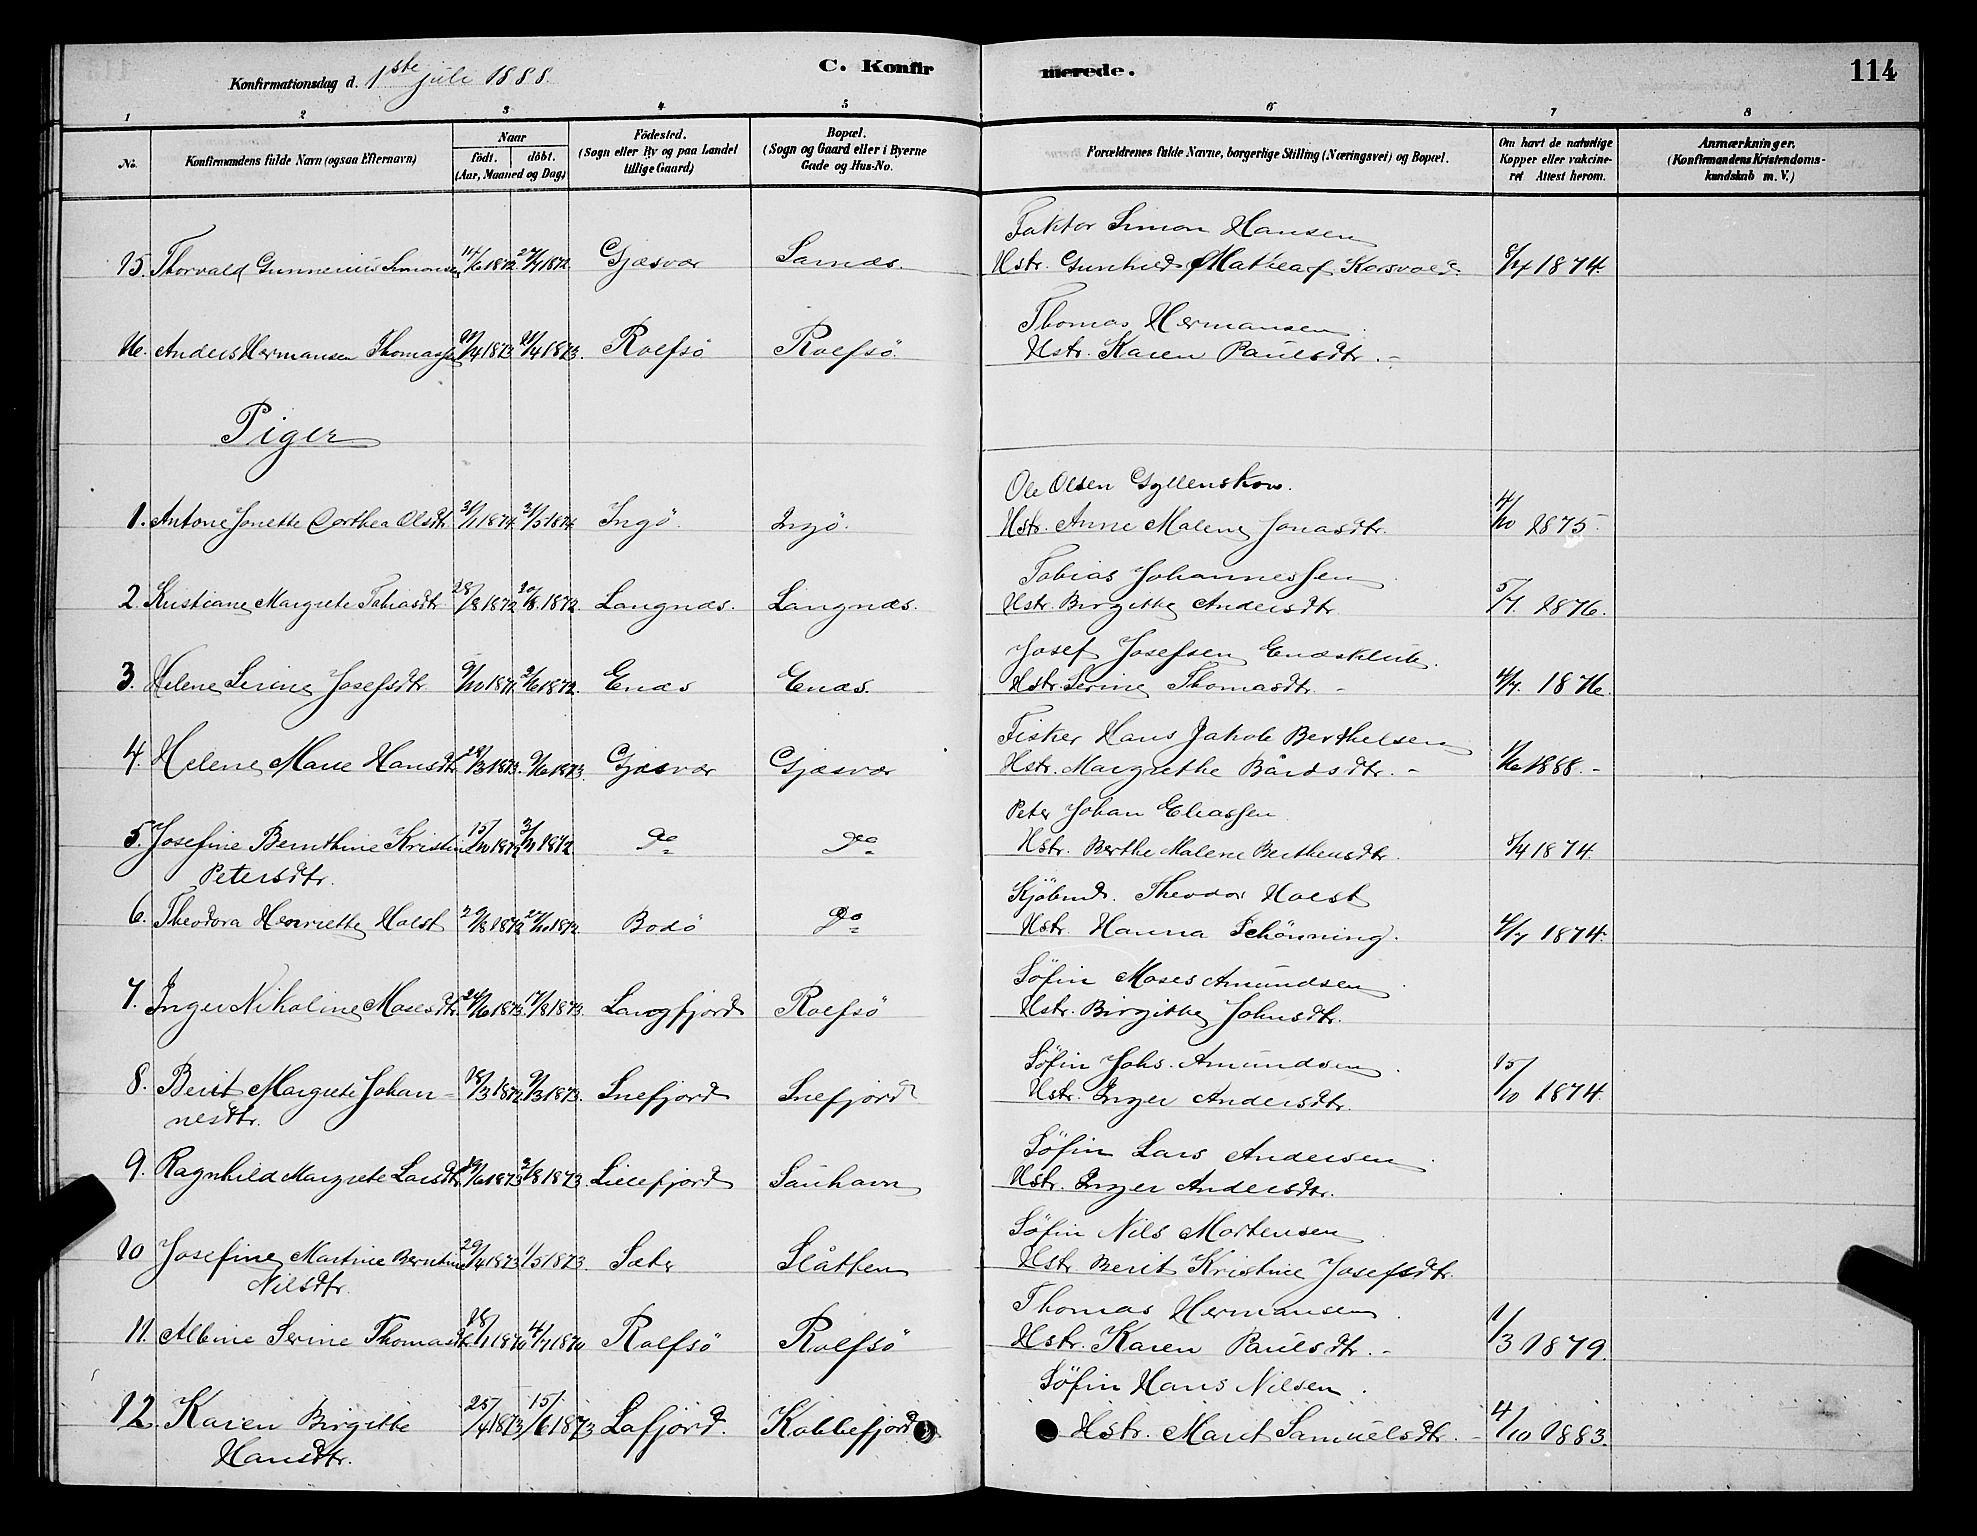 Konfirmationsdag d. 1ste juli 1888.
C. Konfirmerede.
114
1 2 3 4 5 6 7 8
No. Konfirmandens fulde Navn (ogsaa Efternavn)
Naar
födt. döbt.
(Aar, Maaned og Dag)
Födested.
(Sogn eller By og paa Landet
tillige Gaard)
Bopæl.
(Sogn og Gaard eller i Byerne
Gade og Hus-No.
Forældrenes fulde Navne, borgerlige Stilling (Næringsvei) og Bopæl.
Om havt de naturlige
Kopper eller vakcine-
ret Attest herom.
Anmærkninger.
(Konfirmandens Kristendoms-
kundskab m. V.)
Faktor Simon Hansen
15. Thorvald Gunnerius Simonsen 1872 1872 Gjæsvær Sarnæs. Hstr. Gunhild Mathea Korsvold 1874.
Thomas Hermansen
16. Anders Hermansen Thomassen /4 1873 /4 1873. Rolfsö Rolfsö. Hstr. Karen Paulsdtr.
Piger
Ole Olsen Gyllenskow.
1. Antone Jonette Dorthea Olsdtr. 31/1 1874. 31/5 1874 Ingö. Ingö. Hstr. Anne Malene Jonasdtr. 4/10 1875.
Tobias Johannessen
2. Kristiane Margrete Tobiasdtr. 28/8 1872 1872. Langnæs. Langnæs. Hstr. Birgitte Andersdtr. 5/7 1876.
Josef Josefsen Enæsklub.
3. Helene Serine Josefsdtr. 9/10 1871. 2/6 1872. Enæs Enæs. Hstr. Serine Thomasdtr. 4/7. 1876.
Fisker Hans Jakob Berthelsen
4. Helene Marie Hansdtr. 28/3 1873. 9/6 1873. Gjæsvær Gjæsvær Hstr. Margrethe Bårdsdtr. 1/6 1888.
Peter Johan Eliassen
5. Josefine Bernthine Kristine 15/10 1872 3/11 1872 do do Hstr. Berthe Malene Berthensdtr. 8/4 1874.
Petersdtr.
Kjöbmd. Theodor Holst
6. Theodora Henriette Holst 29/8 1872 27/10 1872 Bodö do Hstr. Hanna Schönning. 6/7 1874.
Söfin Moses Amundsen
7. Inger Nikoline Mosesdtr. 24/6 1873. 17/8 1873. Langfjord Rolfsö Hstr. Birgitte Johnsdtr.
Söfin Johs. Amundsen
8. Berit Margrete Johan- 18/3 1872 9/3 1873. Snefjord Snefjord Hstr. Inger Andersdtr. 15/10 1874.
nesdtr.
Söfin Lars Andersen
9. Ragnhild Margrete Larsdtr. 19/6 1873 3/8 1873. Lillefjord Sauhavn Hstr. Inger Andersdtr.
Söfin Nils Mortensen
10 Josefine Martine Berntine 29/4 1873 1/5 1873. Sæter Slåtten Hstr Berit Kristine Josefsdtr.
Nilsdtr.
Thomas Hermansen
11. Albine Serine Thomasdtr. 18/1 1870 4/7 1870 Rolfsö Rolfsö Hstr. Karen Paulsdtr. 1/3 1879.
Söfin Hans Nilsen.
12. Karen Birgitte 25/4 1873 15/6 1873 Lafjord. Kobbefjord Hstr. Marit Samuelsdtr. 4/10 1883.
Hansdtr.